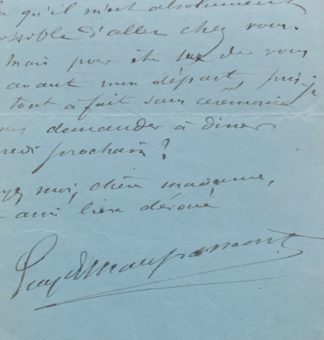 qu'il m'est absolument
possible d'aller chez vous.
Mais pour être sûr de vous
avant mon départ, puis-je
tout à fait sans cérémonie
vous demander à dîner
credi prochain ?
yez moi, chère madame,
ami bien dévoué
Guy de Maupassant